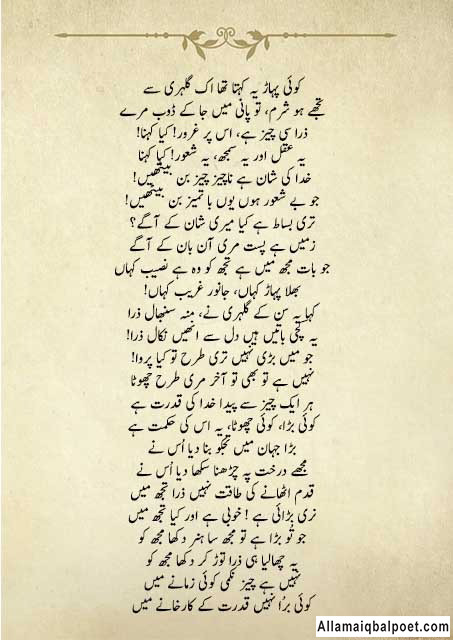 کوئی پہاڑ یہ کہتا تھا اک گلہری سے
تجھے ہو شرم، تو پانی میں جا کے ڈوب مرے
ذرا سی چیز ہے، اس پر غرور! کیا کہنا!
یہ عقل اور یہ سمجھ، یہ شعور! کیا کہنا
خدا کی شان ہے ناچیز چیز بن بیٹھیں!
جو بے شعور ہوں یوں باتمیز بن بیٹھیں!
تری بساط ہے کیا میری شان کے آگے؟
زمیں ہے پست مری آن بان کے آگے
جو بات مجھ میں ہے تجھ کو وہ ہے نصیب کہاں
بھلا پہاڑ کہاں، جانور غریب کہاں!
کہا یہ سن کے گلہری نے، منہ سنبھال ذرا
یہ کچی باتیں ہیں دل سے انھیں نکال ذرا!
جو میں بڑی نہیں تری طرح تو کیا پروا!
نہیں ہے تو بھی تو آخر مری طرح چھوٹا
ہر ایک چیز سے پیدا خدا کی قدرت ہے
کوئی بڑا، کوئی چھوٹا، یہ اس کی حکمت ہے
بڑا جہان میں تجکو بنا دیا اُس نے
مجھے درخت پہ چڑھنا سکھا دیا اُس نے
قدم اٹھانے کی طاقت نہیں ذرا تجھ میں
نری بڑائی ہے! خوبی ہے اور کیا تجھ میں
جو تُو بڑا ہے تو مجھ سا ہنر دکھا مجھ کو
یہ چھالیا ہی ذرا توڑ کر دکھا مجھ کو
نہیں ہے چیز نکمی کوئی زمانے میں
کوئی برُا نہیں قدرت کے کارخانے میں
Allamaiqbalpoet.com